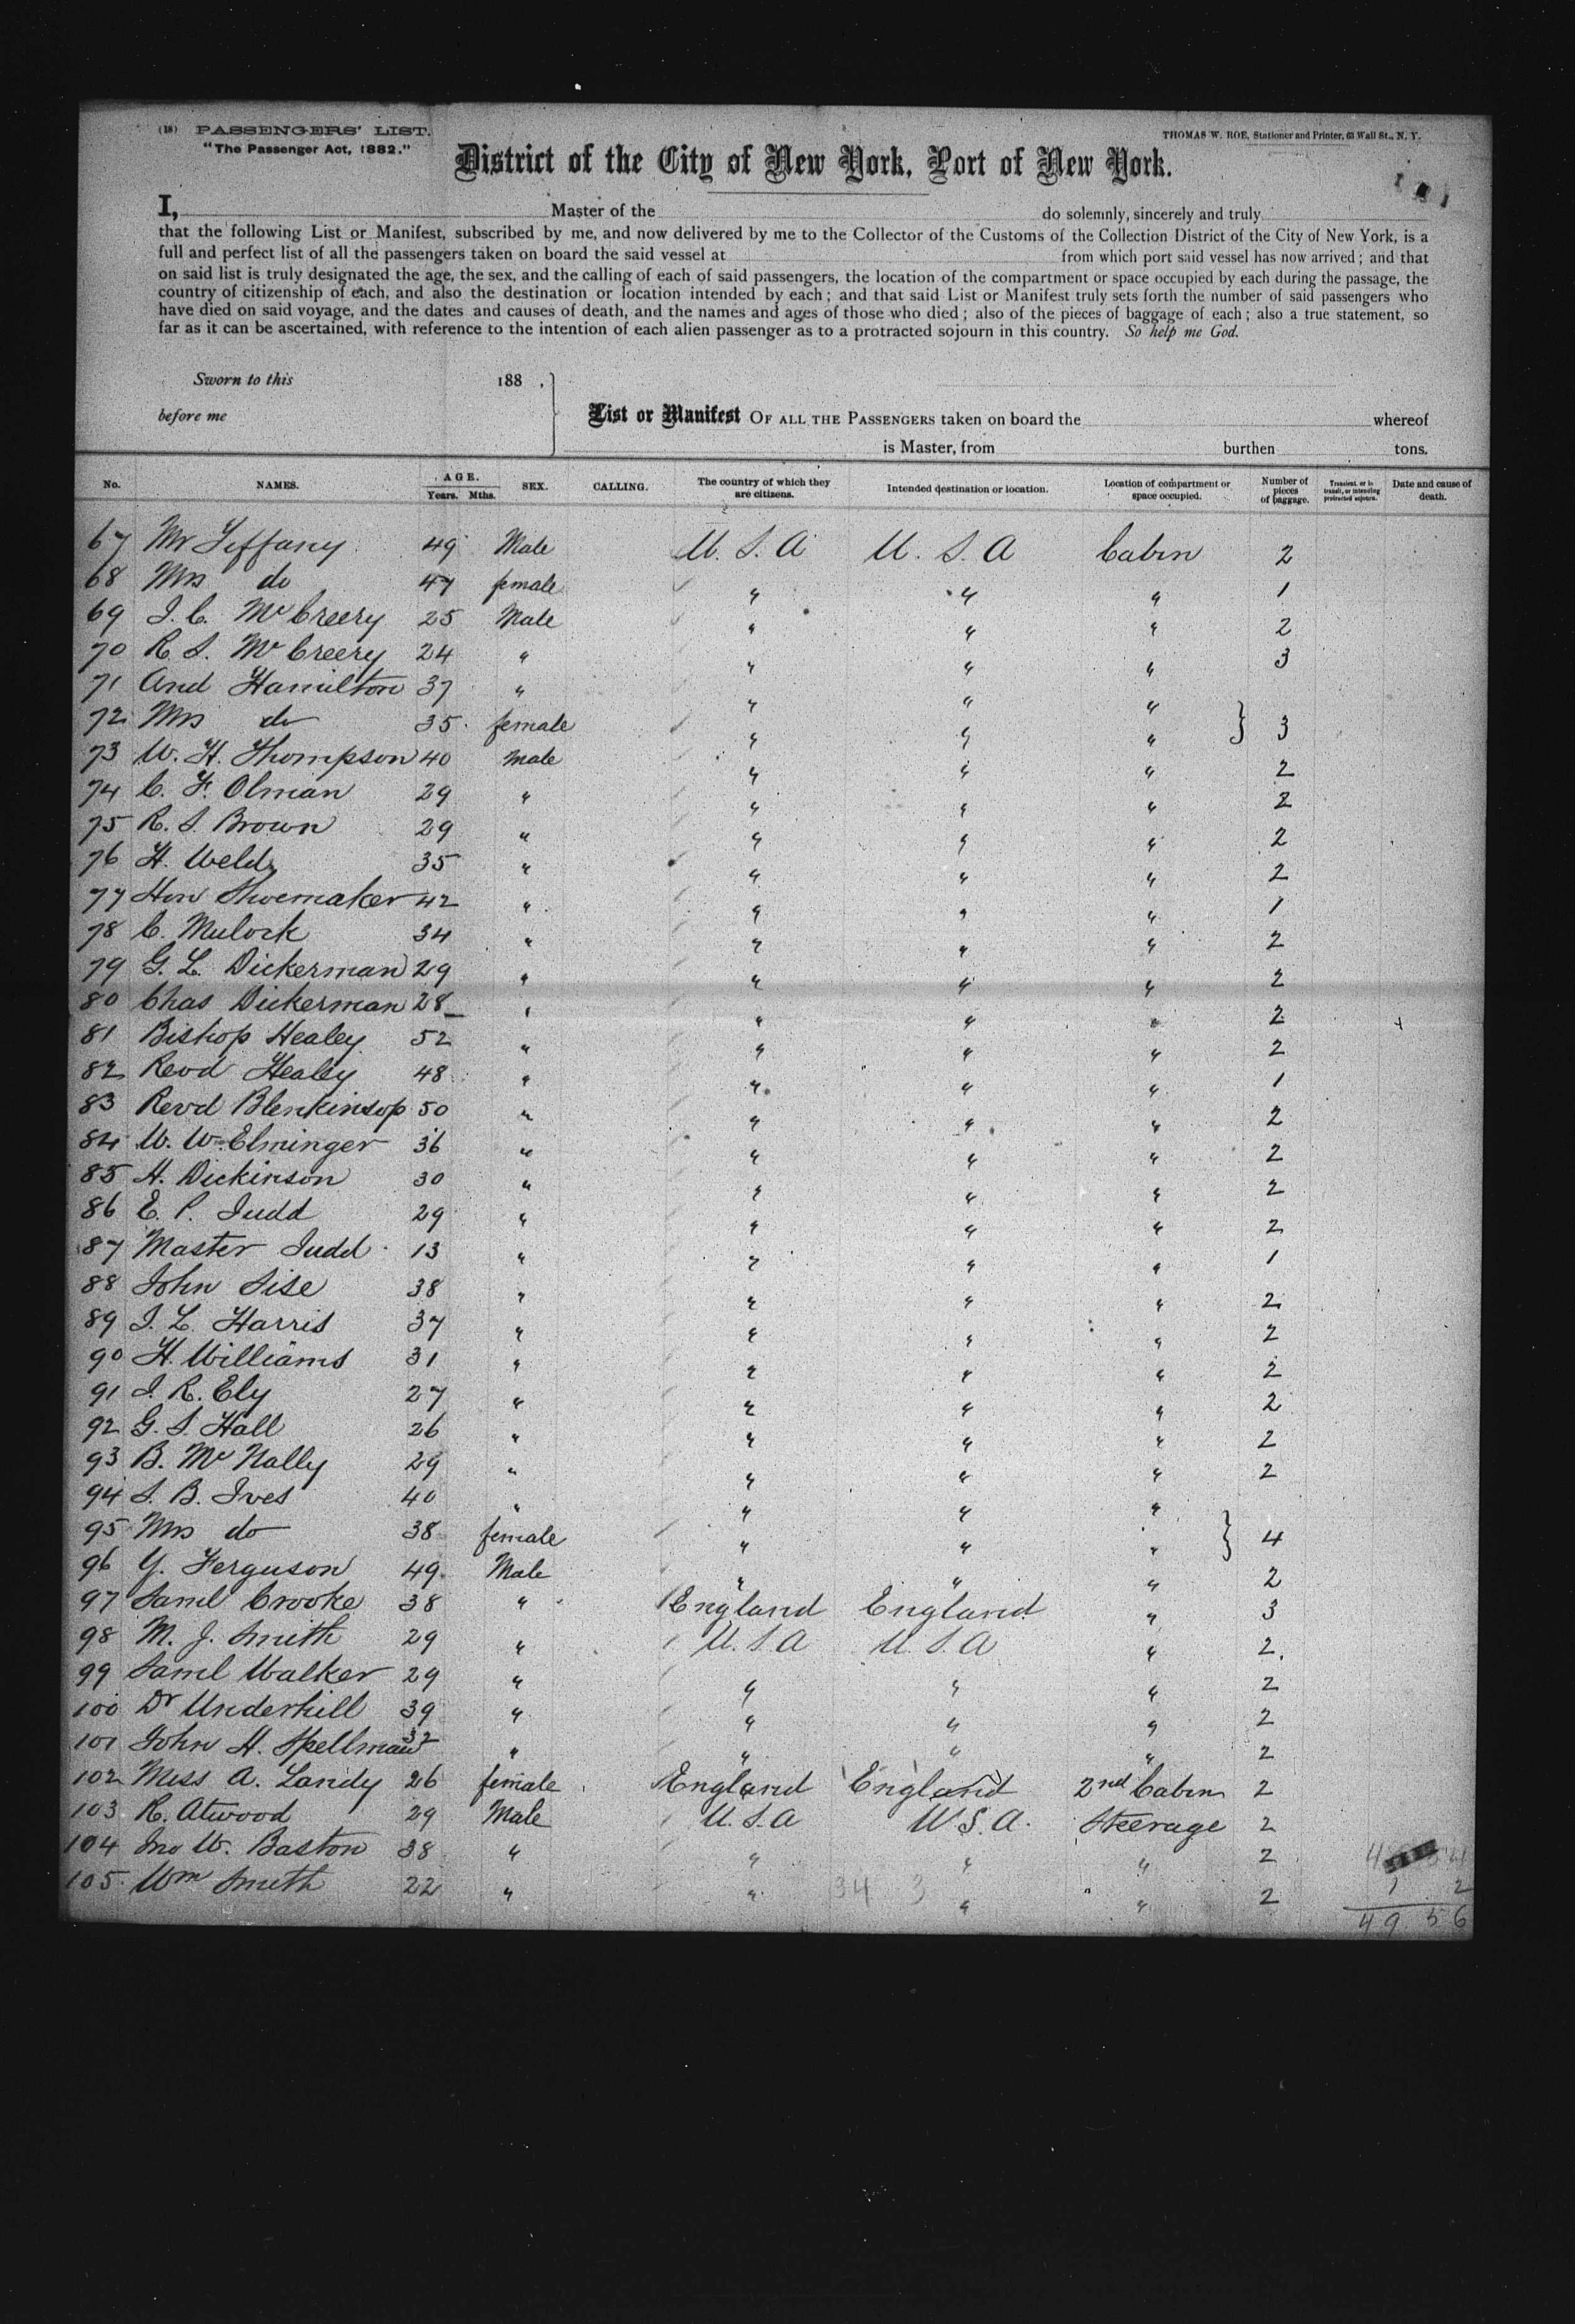 (18) PASSENGERS' LIST.
THOMAS W. ROE, Stationer and Printer, 63 Wall St., N. Y.
"The Passenger Act, 1882."
District of the City of New York, Port of New York.
I, Master of the do solemnly, sincerely and truly
that the following List or Manifest, subscribed by me, and now delivered by me to the Collector of the Customs of the Collection District of the City of New York, is a
full and perfect list of all the passengers taken on board the said vessel at from which port said vessel has now arrived; and that
on said list is truly designated the age, the sex, and the calling of each of said passengers, the location of the compartment or space occupied by each during the passage, the
country of citizenship of each, and also the destination or location intended by each; and that said List or Manifest truly sets forth the number of said passengers who
have died on said voyage, and the dates and causes of death, and the names and ages of those who died; also of the pieces of baggage of each; also a true statement, so
far as it can be ascertained, with reference to the intention of each alien passenger as to a protracted sojourn in this country. So help me God.
Sworn to this 188 ,
before me
List or Manifest OF ALL THE PASSENGERS taken on board the whereof
is Master, from burthen tons.
No. NAMES. AGE. Years. Mths. SEX. CALLING. The country of which they are citizens. Intended destination or location. Location of compartment or space occupied. Number of pieces of baggage. Transient, or in transit, or intending protracted sojourn. Date and cause of death.
67 Mr Tiffany 49 Male U. S. A U. S. A Cabin 2
68 Mrs do 47 female " " " 1
69 J. C. McCreery 25 Male " " " 2
70 R. S. McCreery 24 " " " " 3
71 And Hamilton 37 " " " "
72 Mrs do 35 female " " " } 3
73 W. H. Thompson 40 Male " " " 2
74 C. F. Olman 29 " " " " 2
75 R. S. Brown 29 " " " " 2
76 H. Weld 35 " " " " 2
77 Hon Shoemaker 42 " " " " 1
78 C. Mulock 34 " " " " 2
79 G. L. Dickerman 29 " " " " 2
80 Chas Dickerman 28 " " " " 2
81 Bishop Healey 52 " " " " 2
82 Revd Healey 48 " " " " 1
83 Revd Blenkinsop 50 " " " " 2
84 W. W. Elminger 36 " " " " 2
85 H. Dickinson 30 " " " " 2
86 E. P. Judd 29 " " " " 2
87 Master Judd 13 " " " " 1
88 John Sise 38 " " " " 2
89 J. L. Harris 37 " " " " 2
90 H. Williams 31 " " " " 2
91 J. R. Ely 27 " " " " 2
92 G. S. Hall 26 " " " " 2
93 B. McNally 29 " " " " 2
94 S. B. Ives 40 " " " "
95 Mrs do 38 female " " " } 4
96 Y. Ferguson 49 Male " " " 2
97 Saml Crooke 38 " England England " 3
98 M. J. Smith 29 " U. S. A U. S. A " 2.
99 Saml Walker 29 " " " " 2
100 Dr Underhill 39 " " " " 2
101 John H. Spellman 32 " " " " 2
102 Miss A. Landy 26 female England England 2nd Cabin 2
103 R. Atwood 29 Male U. S. A U. S. A. Steerage 2
104 Jno W. Baston 38 " " " " 2
105 Wm Smith 22 " " 34 3 " " 2
1 2
49 56